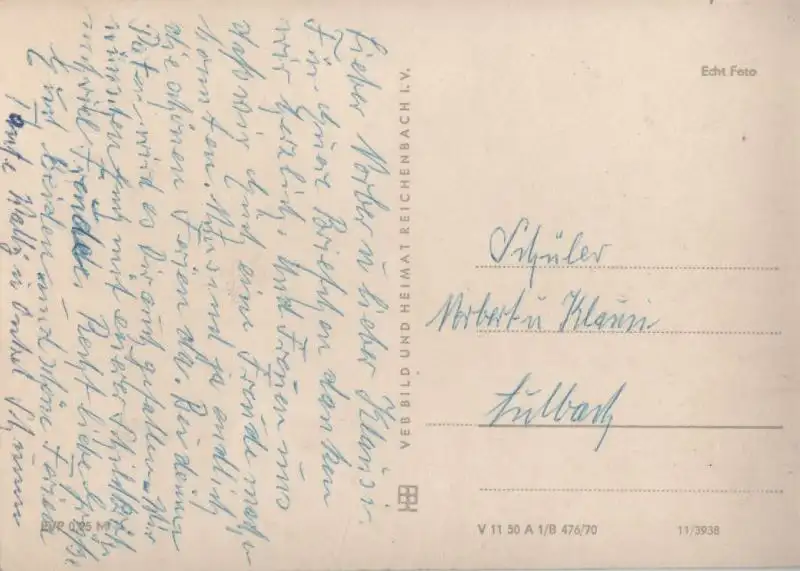 Lieber Norbert u lieber Klausi.
Für Eure Briefchen danken
wir herzlich, und freuen uns
daß wir Euch eine Freude machen
konnten. Nun sind ja endlich
die schönen Ferien da. Bei Deiner
wird es Dir auch gefallen. Wir
wünschen Euch mit
recht viel Freude. Recht liebe Grüße
Euch Beiden und schöne Ferien
Tante Kathi u Onkel
VEB BILD UND HEIMAT REICHENBACH I. V.
Echt Foto
Schüler
Norbert u Klausi
EVP 0,25 M
V 11 50 A 1/B 476/70
11/3938